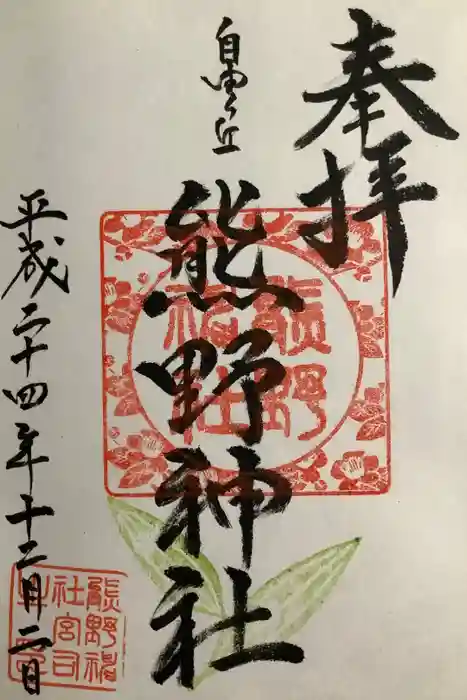 奉拝
自由ヶ丘
熊野神社
平成二十四年十二月二日
熊野
神社
熊野神
社宮司